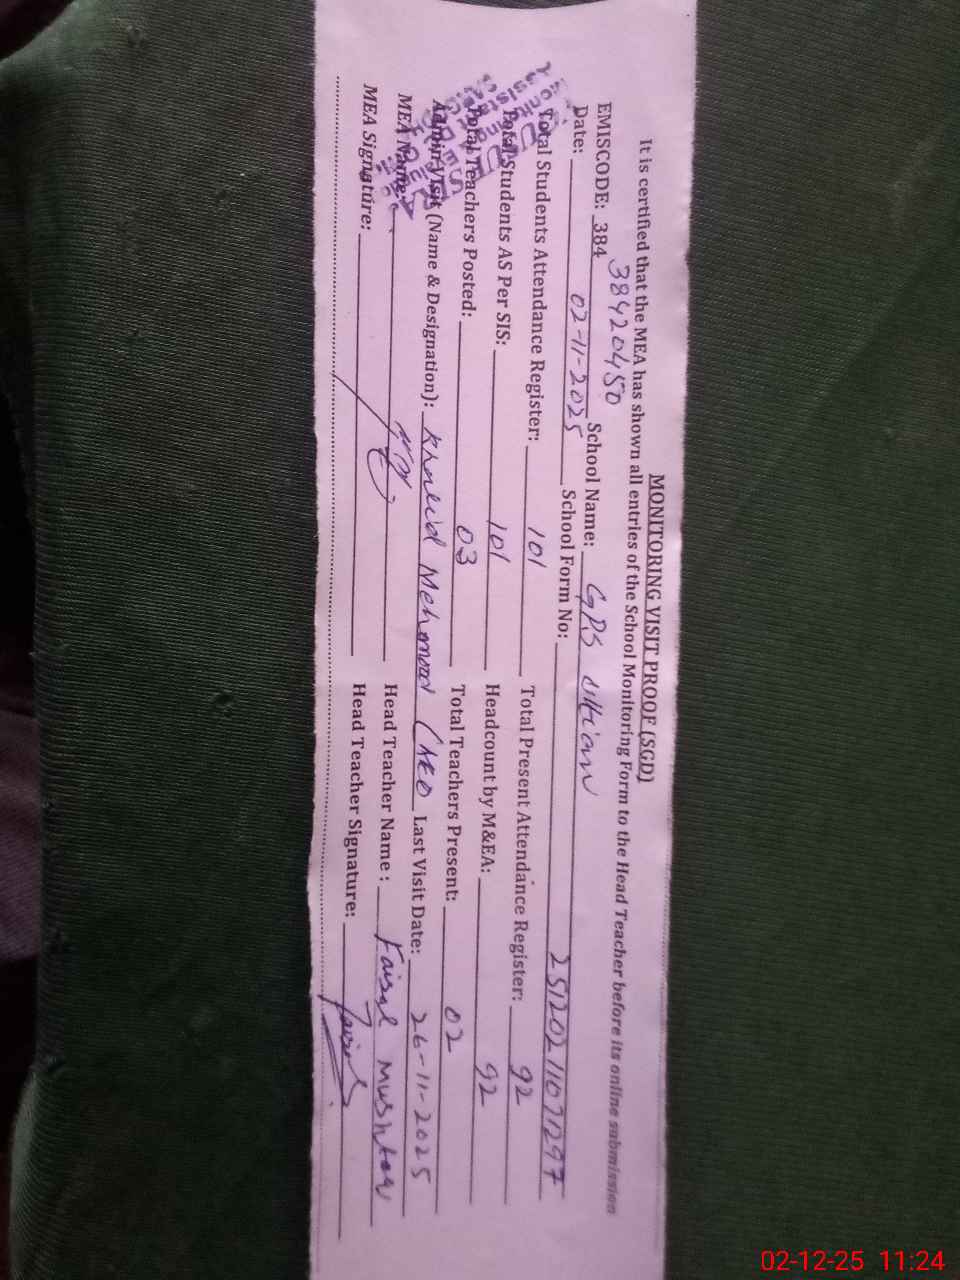 MONITORING VISIT PROOF (SGD)
It is certified that the MEA has shown all entries of the School Monitoring Form to the Head Teacher before its online submission
38420450
EMISCODE: 384 School Name: GPS
Date: 02-11-2025 School Form No: 25120211071297
Total Students Attendance Register: 101 Total Present Attendance Register: 92
Total Students AS Per SIS: 101 Headcount by M&EA: 92
Total Teachers Posted: 03 Total Teachers Present: 02
Admin Visit (Name & Designation): Khalid Mehmood (AEO Last Visit Date: 26-11-2025
MEA Name: Head Teacher Name : Faisal Mushtaq
MEA Signature: Head Teacher Signature:
02-12-25 11:24